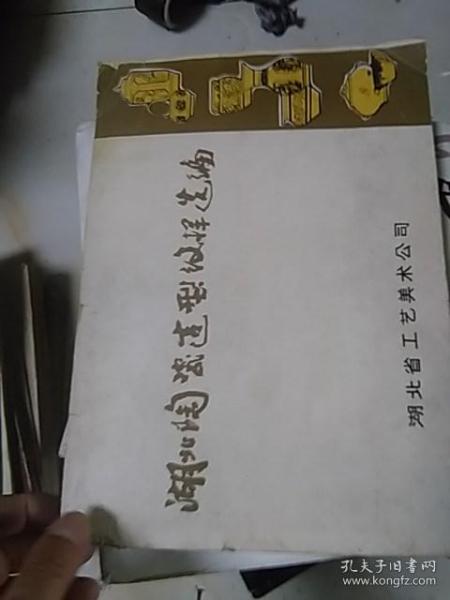 湖北陶瓷造型纹样选编
湖北省工艺美术公司
孔夫子旧书网
www.kongfz.com